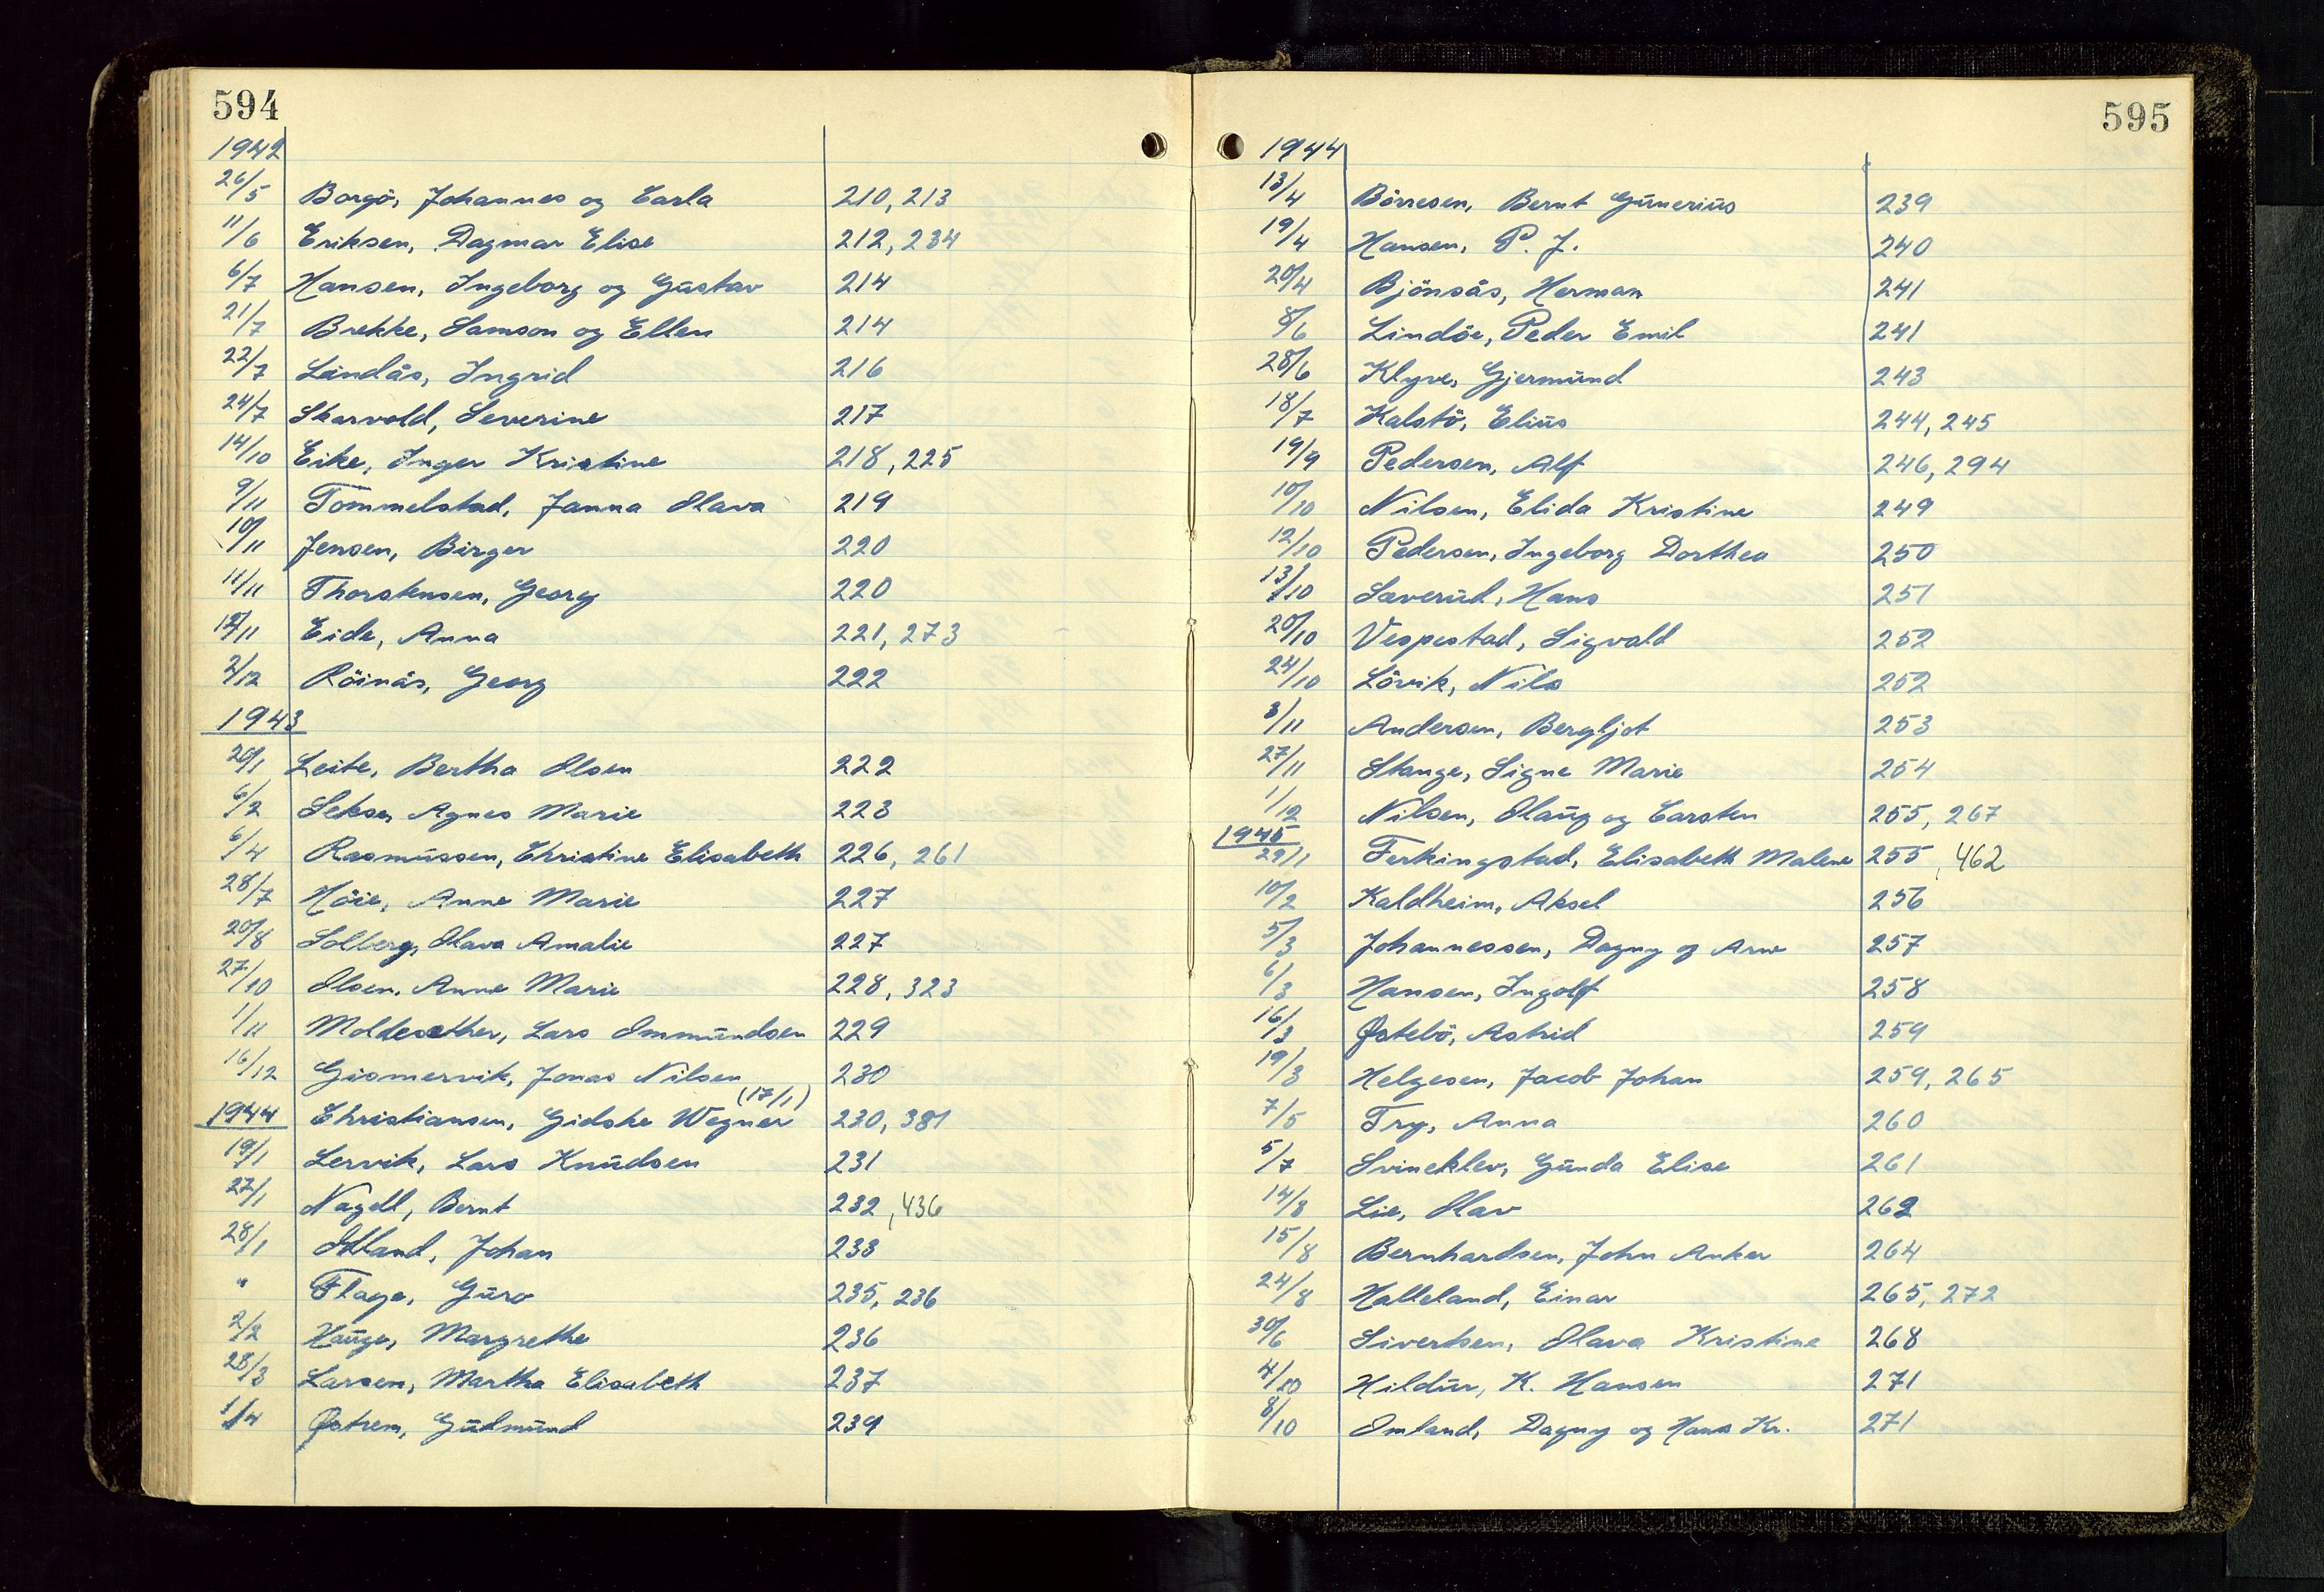 594
1942
26/5 Borgö, Johannes og Carla 210, 213
11/6 Eriksen, Dagmar Elise 212, 234
6/7 Hansen, Ingeborg og Gustav 214
21/7 Brekke, Samson og Ellen 214
22/7 Lindås, Ingrid 216
24/7 Skarvold, Severine 217
14/10 Eike, Inger Kristine 218, 225
9/11 Tommelstad, Janna Olava 219
10/11 Jensen, Birger 220
11/11 Thorstensen, Georg 220
12/11 Eide, Anna 221, 273
2/12 Röinås, Georg 222
1943
20/1 Leite, Bertha Olsen 222
6/2 Sekse, Agnes Marie 223
6/4 Rasmussen, Christine Elisabeth 226, 261
28/7 Höie, Anne Marie 227
20/8 Solberg, Olava Amalie 227
27/10 Olsen, Anne Marie 228, 323
1/11 Moldesæther, Lars Ommundsen 229
16/12 Gismervik, Jonas Nilsen 230
(17/1)
1944 Christiansen, Gidske Wegner 230, 381
19/1 Lervik, Lars Knudsen 231
27/1 Nagell, Bernt 232, 436
28/1 Ødland, Johan 233
" Flage, Guro 235, 236
2/2 Hauge, Margrethe 236
28/3 Larsen, Martha Elisabeth 237
1/4 Østrem, Gudmund 239
595
1944
13/4 Börresen, Bernt Gunerius 239
19/4 Hansen, P. J. 240
20/4 Bjönsås, Herman 241
8/6 Lindöe, Peder Emil 241
28/6 Klyve, Gjermund 243
18/7 Kalstö, Elius 244, 245
19/9 Pedersen, Alf 246, 294
10/10 Nilsen, Elida Kristine 249
12/10 Pedersen, Ingeborg Dorthea 250
13/10 Sæverud, Hans 251
20/10 Vespestad, Sigvald 252
24/10 Lövik, Nils 252
3/11 Andersen, Bergljot 253
27/11 Stange, Signe Marie 254
1/12 Nilsen, Olaug og Carsten 255, 267
1945
29/1 Ferkingstad, Elisabeth Malene 255, 462
10/2 Kaldheim, Aksel 256
5/3 Johannessen, Dagny og Arne 257
6/3 Hansen, Ingolf 258
16/3 Østebö, Astrid 259
19/3 Helgesen, Jacob Johan 259, 265
7/5 Try, Anna 260
5/7 Svineklev, Gunda Elise 261
14/8 Lie, Olav 262
15/8 Bernhardsen, John Anker 264
24/8 Halleland, Einar 265, 272
30/6 Sivertsen, Olava Kristine 268
4/10 Hildur, K. Hansen 271
8/10 Omland, Dagny og Hans Kr. 271